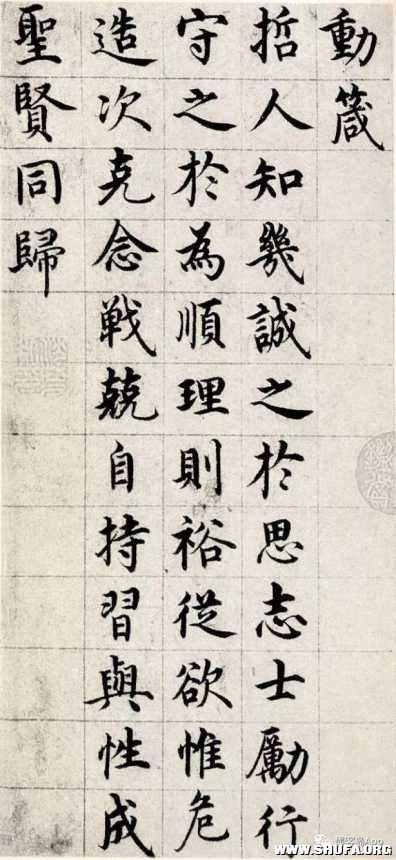 動箴
哲人知幾誠之於思志士勵行
守之於為順理則裕從欲惟危
造次克念戰兢自持習與性成
聖賢同歸
WWW.SHUFA.ORG